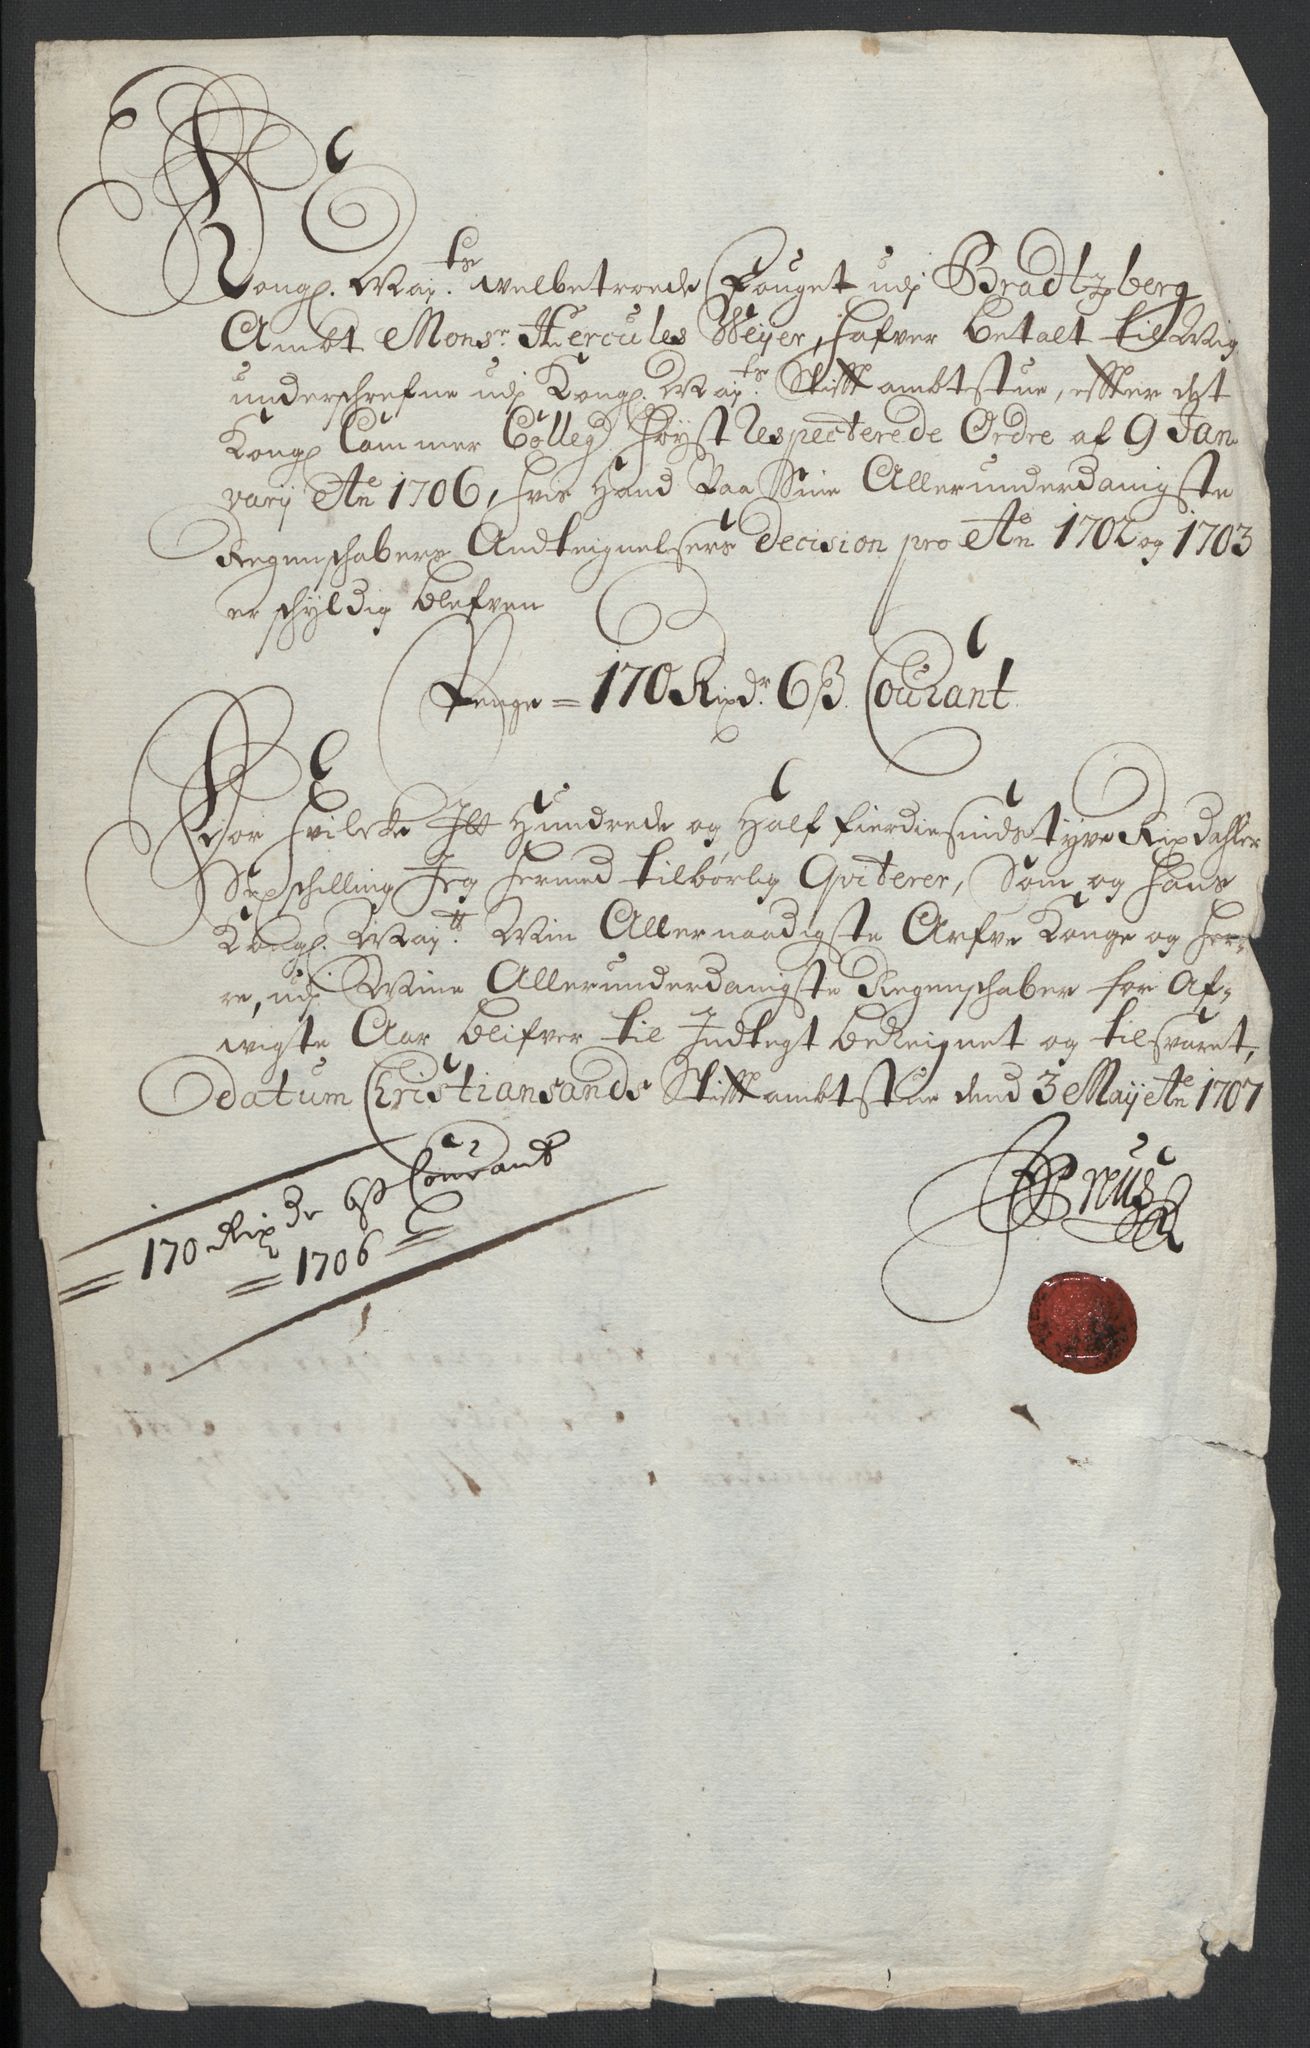 Kongl. May.ts welbetroede Fouget udj Bradtzberg
Ambt Monsr. Hercules Weyer, hafver betalt til Mig
underschrefne udj Kongl. May.ts Stifftambtstue, effter det
Kongl Cammer Colleg. høyst Respecterede Ordre af 9 Jan-
varij Ao 1706, hvis Hand Paa Sine Allerunderdanigste
Regenschabers Andteignelsers Decision pro Ao 1702 og 1703
er schyldig blefven
Penge = 170 Rixdr. 6 ß. Courant
For hvilcke Itt Hundrede og Half fierdiesindstyve Rixdahler
Sex schilling Jeg hermed tilbørlig Qviterer, Som og hans
Kongl. May.tt Min Allernaadigste Arfve Konge og Her-
re, udj Mine Allerunderdanigste Regenschaber for Af-
wigte Aar blifver til Indtegt beReignet og tilsvaret,
Datum Christiansands Stifftambtstue dend 3 Maij Ao 1707
= 170 Rixdr 6 ß Courant
= 1706 =